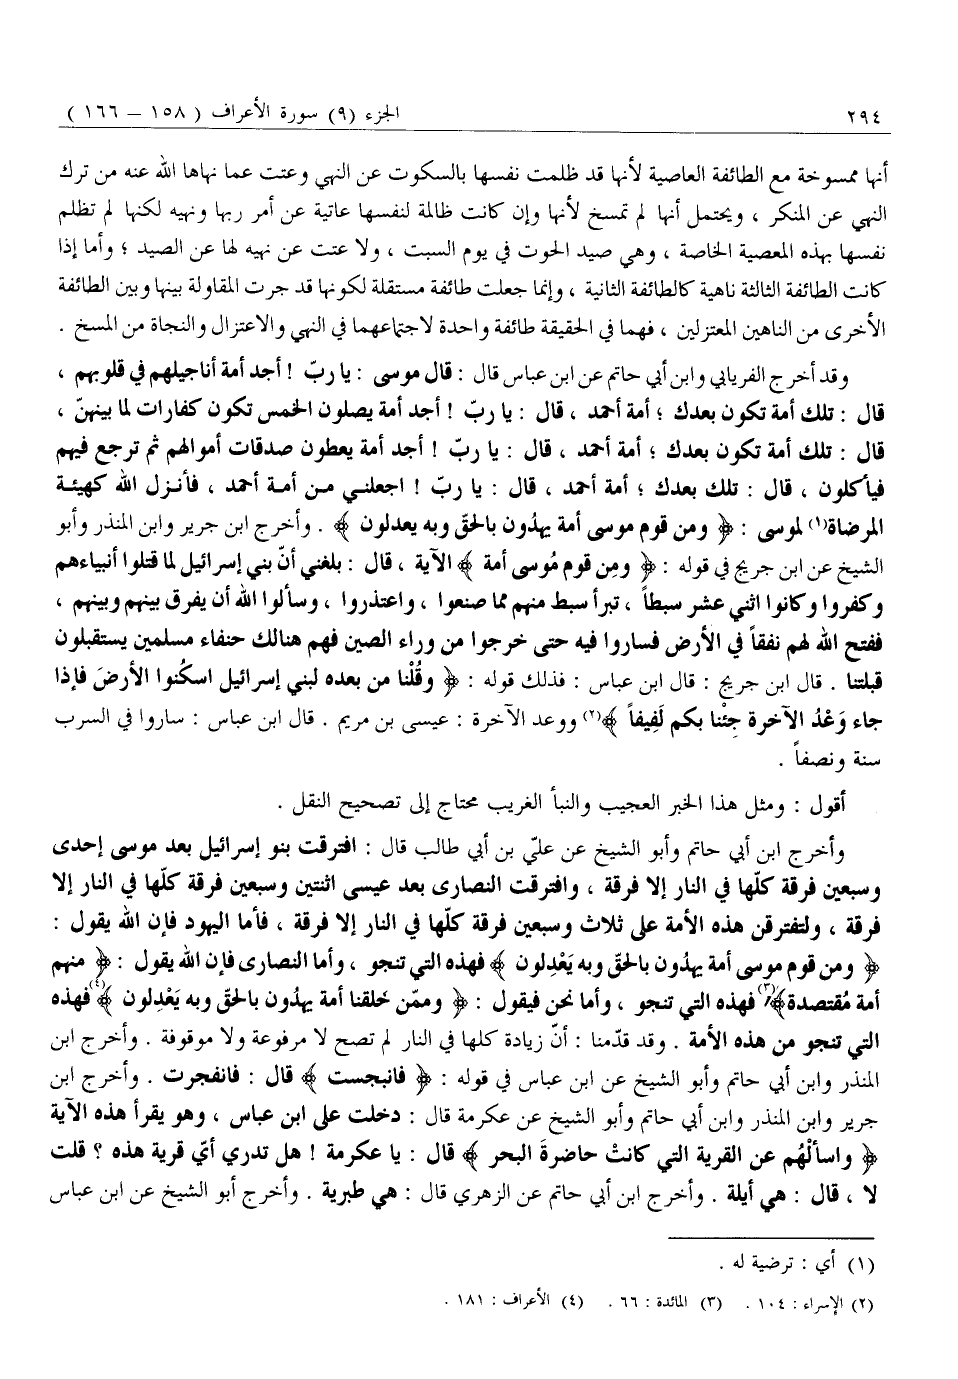 ٢٩٤ الجزء (٩) سورة الأعراف ( ١٥٨ – ١٦٦ )
أنها ممسوخة مع الطائفة العاصية لأنها قد ظلمت نفسها بالسكوت عن النهي وعتت عما نهاها الله عنه من ترك
النهي عن المنكر ، ويحتمل أنها لم تمسخ لأنها وإن كانت ظالمة لنفسها عاتية عن أمر ربها ونهيه لكنها لم تظلم
نفسها بهذه المعصية الخاصة ، وهي صيد الحوت في يوم السبت ، ولا عتت عن نهيه لها عن الصيد ؛ وأما إذا
كانت الطائفة الثالثة ناهية كالطائفة الثانية ، وإنما جعلت طائفة مستقلة لكونها قد جرت المقاولة بينها وبين الطائفة
الأخرى من الناهين المعتزلين ، فهما في الحقيقة طائفة واحدة لاجتماعهما في النهي والاعتزال والنجاة من المسخ .
وقد أخرج الفريابي وابن أبي حاتم عن ابن عباس قال : قال موسى : يا ربّ ! أجد أمة أناجيلهم في قلوبهم ،
قال : تلك أمة تكون بعدك ؛ أمة أحمد ، قال : يا ربّ ! أجد أمة يصلون الخمس تكون كفارات لما بينهنّ ،
قال : تلك أمة تكون بعدك ؛ أمة أحمد ، قال : يا ربّ ! أجد أمة يعطون صدقات أموالهم ثم ترجع فيهم
فيأكلون ، قال : تلك بعدك ؛ أمة أحمد ، قال : يا ربّ ! اجعلني من أمة أحمد ، فأنزل الله كهيئة
المرضاة(١) لموسى : ﴿ ومن قوم موسى أمة يهدُون بالحقّ وبه يعدلون ﴾ . وأخرج ابن جرير وابن المنذر وأبو
الشيخ عن ابن جريج في قوله : ﴿ ومِن قوم مُوسى أمة ﴾ الآية ، قال : بلغني أنّ بني إسرائيل لما قتلوا أنبياءهم
وكفروا وكانوا اثني عشر سبطاً ، تبرأ سبط منهم مما صنعوا ، واعتذروا ، وسألوا الله أن يفرق بينهم وبينهم ،
ففتح الله لهم نفقاً في الأرض فساروا فيه حتى خرجوا من وراء الصين فهم هنالك حنفاء مسلمين يستقبلون
قبلتنا . قال ابن جريج : قال ابن عباس : فذلك قوله : ﴿ وقُلْنا من بعده لبني إسرائيل اسكُنوا الأرضَ فإذا
جاء وَعْدُ الآخرة جِئْنا بكم لَفِيفاً ﴾(٢) ووعد الآخرة : عيسى بن مريم . قال ابن عباس : ساروا في السرب
سنة ونصفاً .
أقول : ومثل هذا الخبر العجيب والنبأ الغريب محتاج إلى تصحيح النقل .
وأخرج ابن أبي حاتم وأبو الشيخ عن عليّ بن أبي طالب قال : افترقت بنو إسرائيل بعد موسى إحدى
وسبعين فرقة كلّها في النار إلا فرقة ، وافترقت النصارى بعد عيسى اثنتين وسبعين فرقة كلّها في النار إلا
فرقة ، ولتفترقن هذه الأمة على ثلاث وسبعين فرقة كلّها في النار إلا فرقة ، فأما اليهود فإن الله يقول :
﴿ ومن قوم موسى أمة يهدُون بالحقّ وبه يَعْدِلون ﴾ فهذه التي تنجو ، وأما النصارى فإن الله يقول : ﴿ منهم
أمة مُقتصدة ﴾(٣) فهذه التي تنجو ، وأما نحن فيقول : ﴿ وممّن خلقنا أمة يهدُون بالحقّ وبه يَعْدِلون ﴾(٤) فهذه
التي تنجو من هذه الأمة . وقد قدّمنا : أنّ زيادة كلها في النار لم تصح لا مرفوعة ولا موقوفة . وأخرج ابن
المنذر وابن أبي حاتم وأبو الشيخ عن ابن عباس في قوله : ﴿ فانبجست ﴾ قال : فانفجرت . وأخرج ابن
جرير وابن المنذر وابن أبي حاتم وأبو الشيخ عن عكرمة قال : دخلت على ابن عباس ، وهو يقرأ هذه الآية
﴿ واسألْهُم عن القرية التي كانتْ حاضرةَ البحر ﴾ قال : يا عكرمة ! هل تدري أيّ قرية هذه ؟ قلت
لا ، قال : هي أيلة . وأخرج ابن أبي حاتم عن الزهري قال : هي طبرية . وأخرج أبو الشيخ عن ابن عباس
(١) أي : ترضية له .
(٢) الإسراء : ١٠٤ . (٣) المائدة : ٦٦ . (٤) الأعراف : ١٨١ .